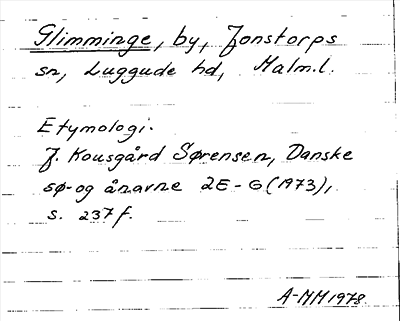 Glimminge, by, Jonstorps
sn, Luggude hd, Malm.l.
Etymologi.
J. Kousgård Sørensen, Danske
sø- og ånavne 2E-G (1973),
s. 237f.
A-MM 1978